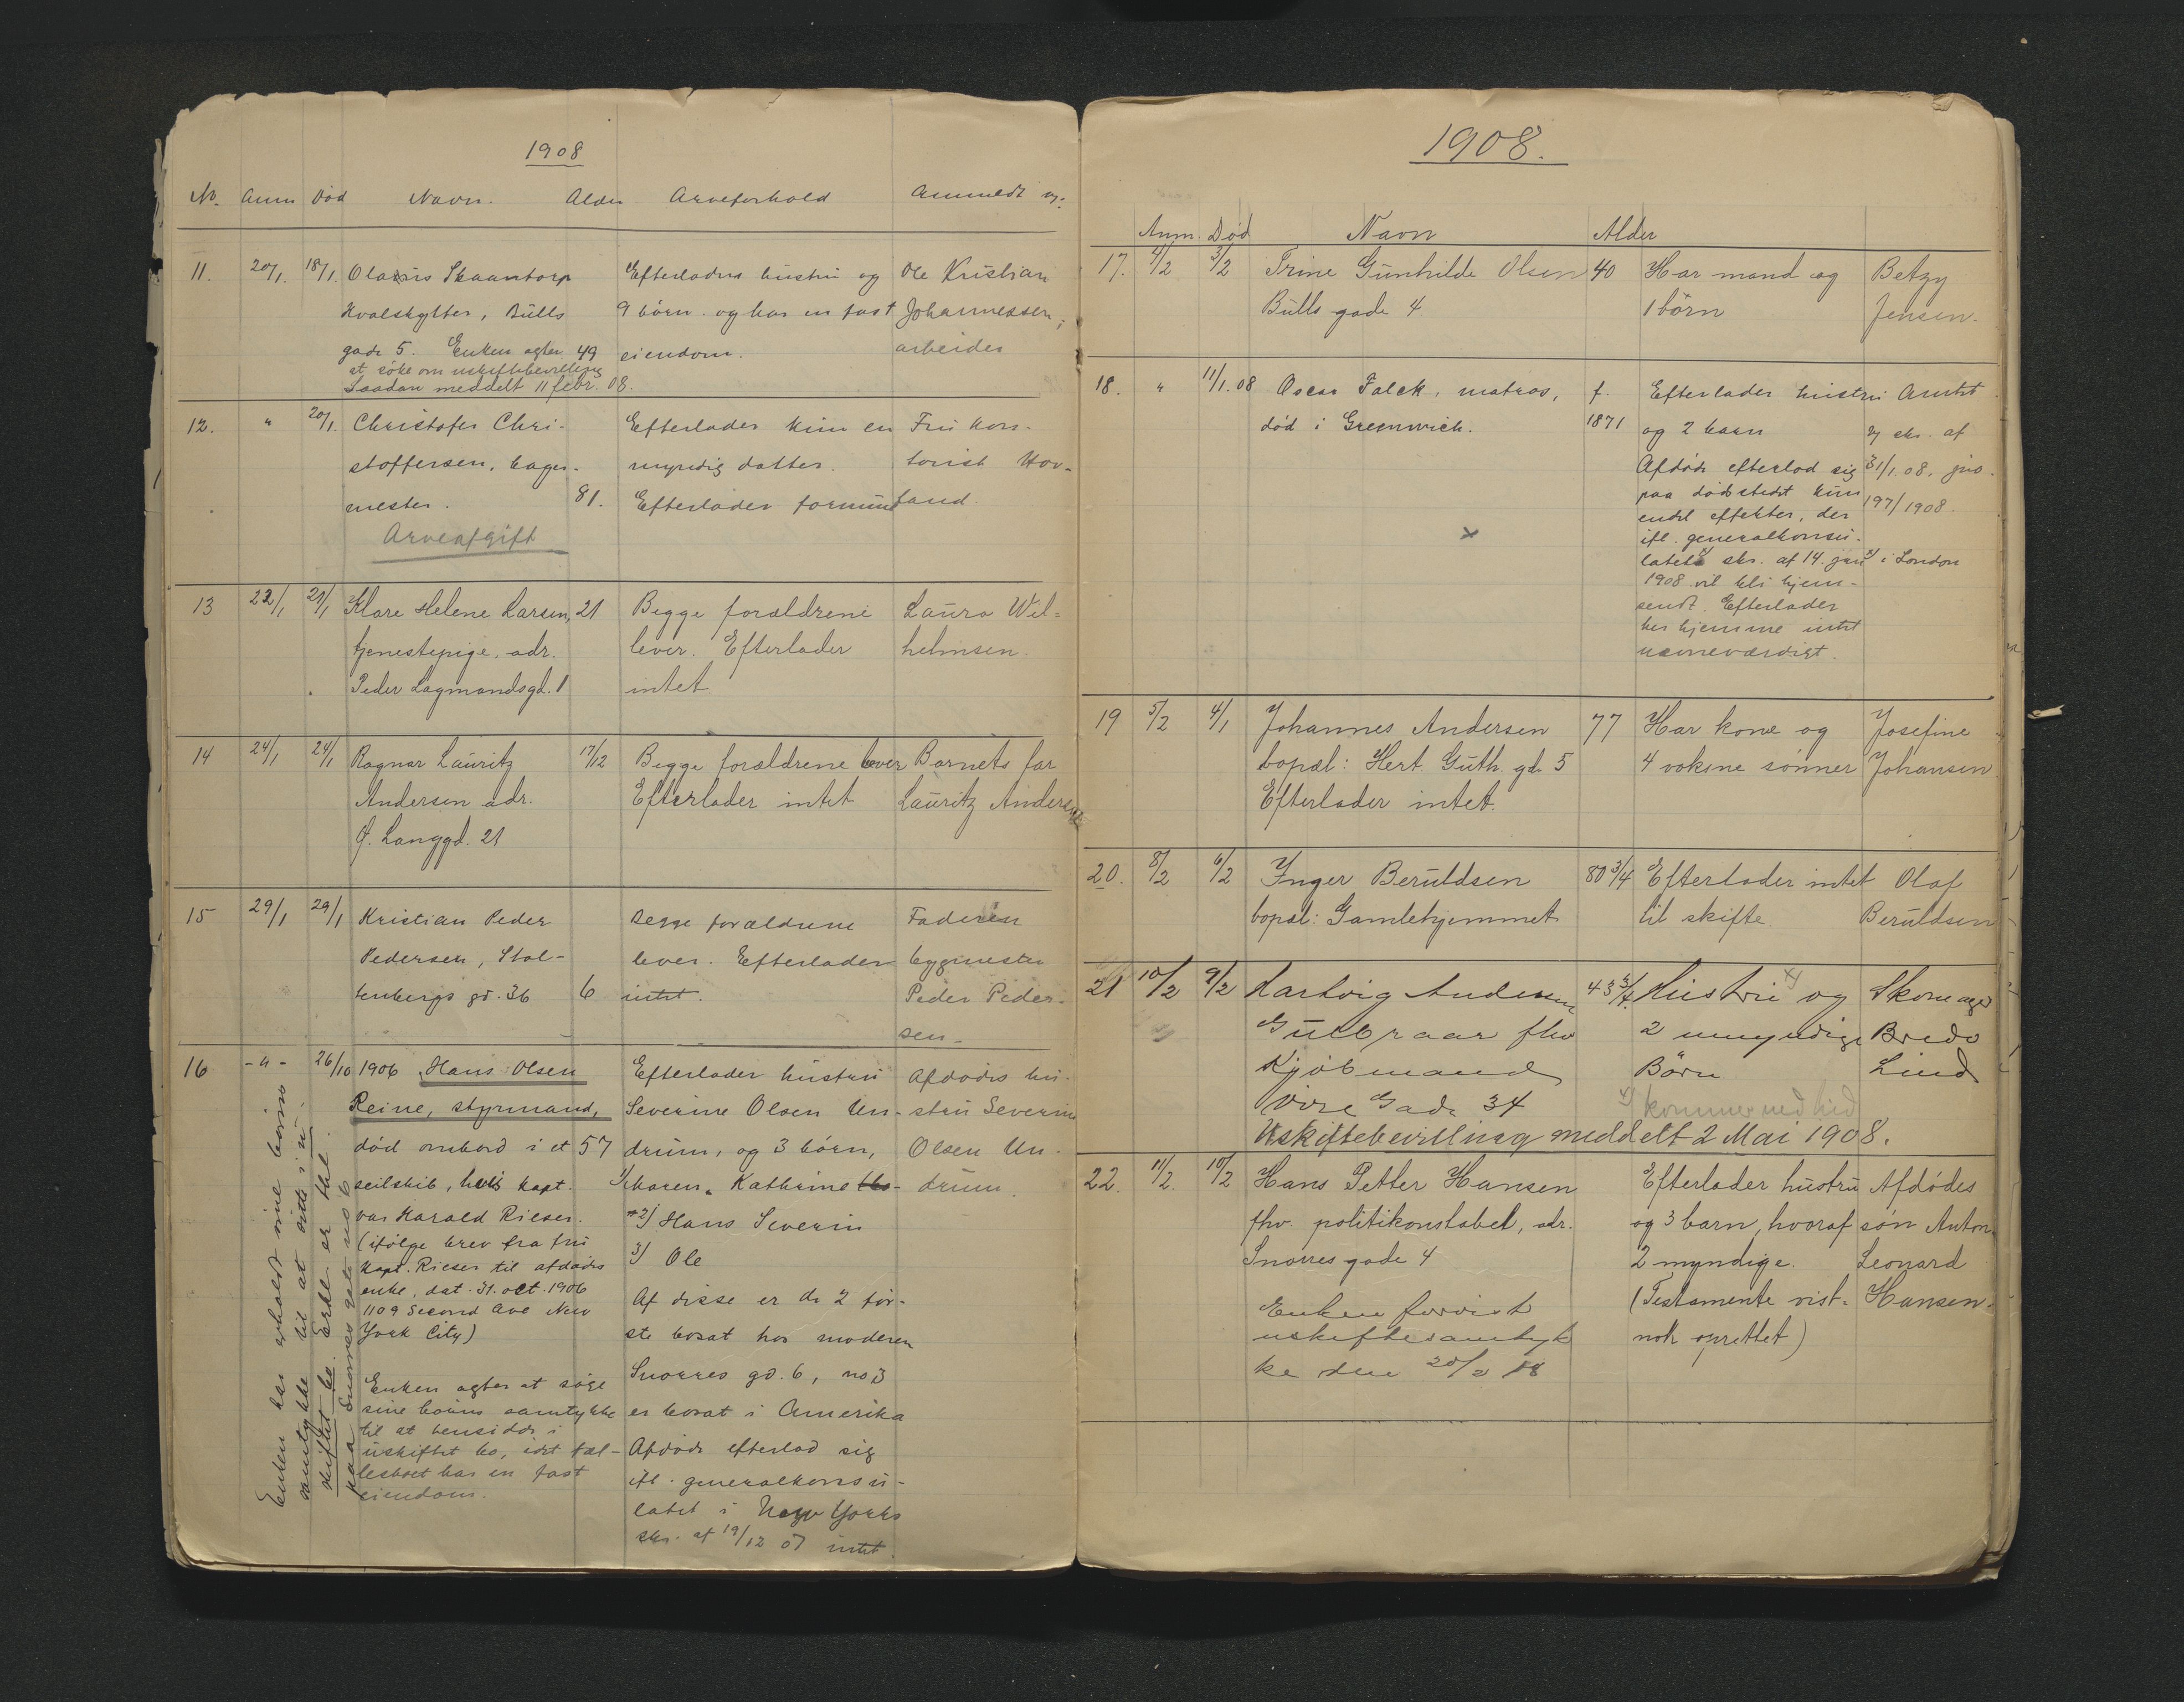 1908
No. Anm Død Navn. Alder Arveforhold Anmeldt av:
11. 20/1. 18/1. Olaus Skaantorp
Hvalskytter, Bülls
gade 5. Enken agter 49
at søke om uskiftebevilling
Saadan meddelt 11 febr. 08.
Efterlader hustru og
9 børn og har en fast
eiendom.
Ole Kristian
Johannessen,
arbeider
12. " 20/1. Christofer Chri-
stoffersen, bager-
mester. 81.
Arveafgift
Efterlader kun en
myndig datter.
Efterlader formue
Fru kon-
torist Hov-
land.
13 22/1 21/1 Klare Helene Larsen, 21
tjenestepige, adr.
Peder Lagmandsgd. 1
Begge forældrene
lever. Efterlader
intet
Laura Wil=
helmsen.
14 24/1 24/1 Ragnar Lauritz 17/12
Andersen adr.
Ø. Langgd. 21
Begge forældrene lever
Efterlader intet
Barnets far
Lauritz Andersen
15 29/1 29/1 Kristian Peder
Pedersen, Stol-
tenbergs gd. 36 6
Begge forældrene
lever. Efterlader
intet.
Faderen
bygmester
Peder Peder-
sen.
16 -"- 26/10 1906 Hans Olsen
Reine, styrmand,
død ombord i et 57
seilskib, hvis kapt.
var Harald Rieser.
(ifølge brev fra fru
Kapt. Rieser til afdødes
enke, dat. 31. oct. 1906
1109 Second Ave New
York City)
Enken agter at søge
sine børns samtykke
til at hensidde i
uskiftet bo, idet fæl-
lesboet har en fast
eiendom.
Efterlader hustru
Severine Olsen Un-
drum, og 3 børn,
1/ Karen Kathrine
2) Hans Severin
3) Ole
Af disse er de 2 før-
ste bosat hos moderen
Snorres gd. 6, no 3
er bosat i Amerika
Afdøde efterlod sig
ifl. generalkonsu-
latet i New Yorks
skr. af 19/12 07 intet
Afdødes hu-
stru Severine
Olsen Un-
drum.
Enken har erholdt sine børns
samtykke til at sitte i u-
skiftet bo.
paa Snorres gate no 6
1908.
Anm. Død Navn Alder
17. 4/2 3/2 Trine Gunhilde Olsen 40
Bulls gade 4
Har mand og
1 børn
Betzy
Jensen.
18. " 11/1.08 Oscar Falck, matros, f.
død i Greenwich. 1871
Efterlader hustru
og 2 barn
Afdøde efterlod sig
paa dødsstedet kun
endel effekter, der
ifl. generalkonsu-
latets x) skr. af 14. jan
1908 vil bli hjem-
sendt. Efterlader
her hjemme intet
nævneværdigt.
Amtet
ved skr. af
31/1.08, jno.
197/1908.
x) i London
19 5/2 4/1 Johannes Andersen 77
bopæl: Hert. Guth. gd. 5
Efterlader intet.
Har kone og
4 voksne sønner
Josefine
Johansen
20. 8/2 6/2 Inger Beruldsen 80 3/4
bopæl: Gamlehjemmet
Efterlader intet
til skifte.
Olaf
Beruldsen
21 10/2 9/2 Hartvig Andersen 43 3/4
Gulbraar fhv
Kjøbmand
Vore Gade 34
Hustru x) og
2 umyndige
Børn
x) kommer ned hid
Skomager
Bredo
Lind
Uskiftebevilling meddelt 2 Mai 1908.
22. 11/2. 10/2 Hans Petter Hansen
fhv. politikonstabel, adr.
Snorres gade 4
Enken forvist
uskiftesamtyk
ke den 20/2 08
Efterlader hustru
og 3 barn, hvoraf
2 myndige.
(Testamente vist-
nok oprettet)
Afdødes
søn Anton
Leonard
Hansen.